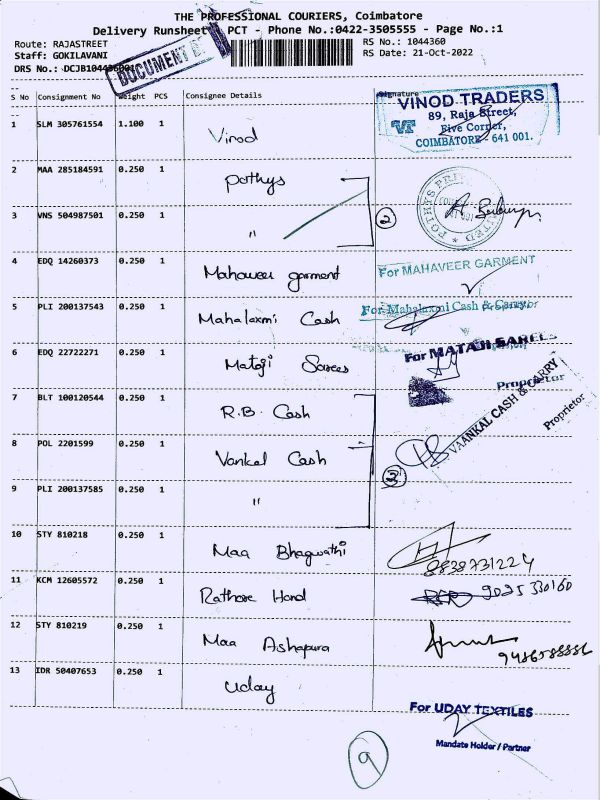 THE PROFESSIONAL COURIERS, Coimbatore
Delivery Runsheet PCT - Phone No.:0422-3505555 - Page No.:1
Route: RAJASTREET
RS No.: 1044360
Staff: GOKILAVANI
RS Date: 21-Oct-2022
DRS No.: DCJB1044360010
DOCUMENT
S No Consignment No Weight PCS Consignee Details Signature
1 SLM 305761554 1.100 1 Vinod
VINOD TRADERS
89, Raja Street,
VT Five Corner,
COIMBATORE - 641 001.
2 MAA 285184591 0.250 1 Pothys
3 VNS 504987501 0.250 1 "
2
4 EDQ 14260373 0.250 1 Mahaveer garment
For MAHAVEER GARMENT
5 PLI 200137543 0.250 1 Mahalaxmi Cash
For Mahalaxmi Cash & Carry
6 EDQ 22722271 0.250 1 Mataji Sarees
For MATAJI SAREES
Proprietor
7 BLT 100120544 0.250 1 R.B. Cash
8 POL 2201599 0.250 1 Vankal Cash
VAANKAL CASH & CARRY
Proprietor
9 PLI 200137585 0.250 1 "
3
10 STY 810218 0.250 1 Maa Bhagwathi
9838731224
11 KCM 12605572 0.250 1 Rathore Hand
9025330160
12 STY 810219 0.250 1 Maa Ashapura
13 IDR 50407653 0.250 1 Uday
For UDAY TEXTILES
Mandate Holder / Partner
9